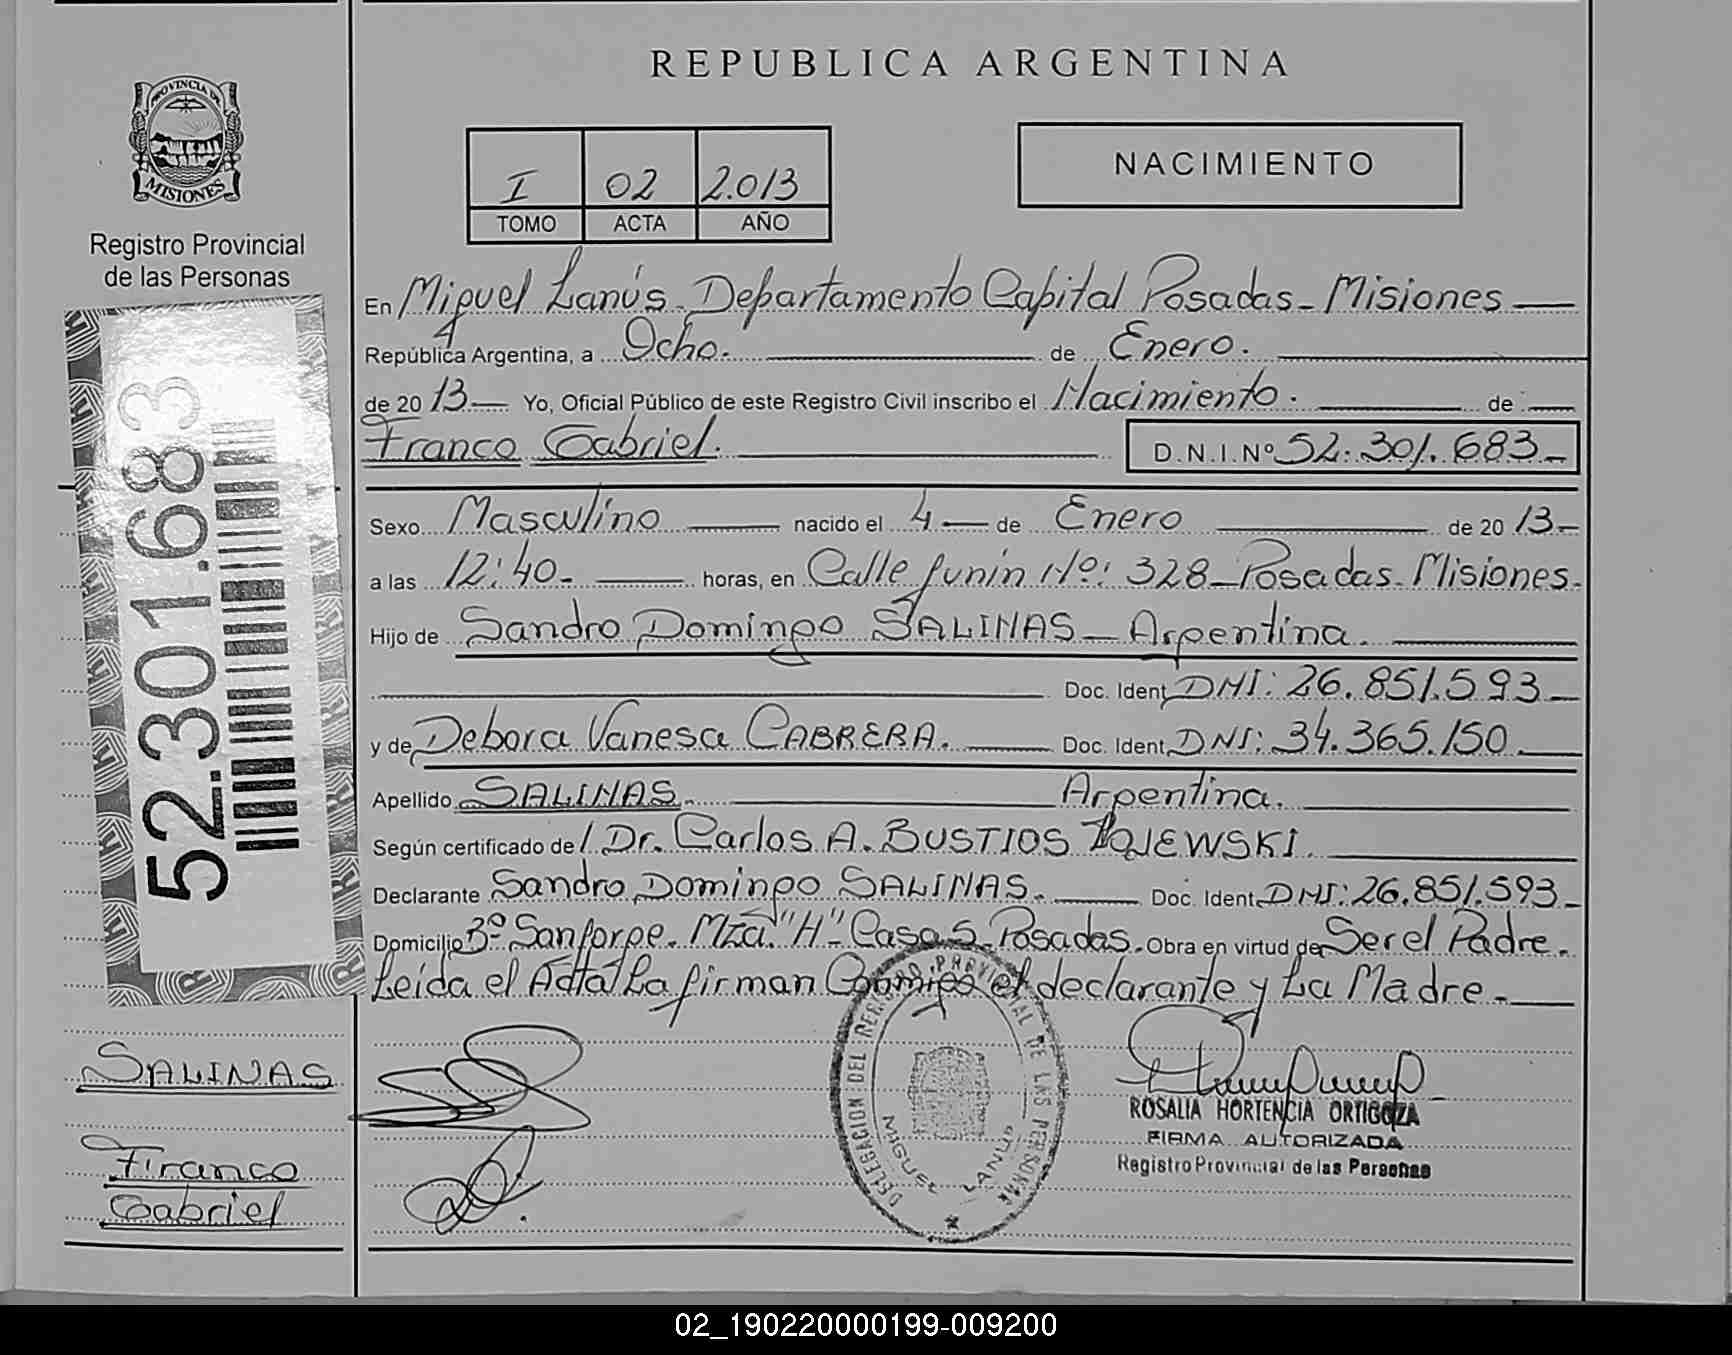 REPUBLICA ARGENTINA
PROVINCIA DE
MISIONES
Registro Provincial
de las Personas
I 02 2.013
TOMO ACTA AÑO
NACIMIENTO
En Miguel Lanús. Departamento Capital Posadas - Misiones
República Argentina, a Ocho. de Enero.
de 2013 Yo, Oficial Público de este Registro Civil inscribo el Nacimiento. de
Franco Gabriel. D.N.I.Nº 52.301.683
Sexo Masculino nacido el 4 de Enero de 2013
a las 12:40 horas, en Calle Junin Nº: 328 - Posadas. Misiones.
Hijo de Sandro Domingo SALINAS - Argentina.
Doc. Ident. DNI: 26.851.593
y de Debora Vanesa CABRERA. Doc. Ident. DNI: 34.365.150
Apellido SALINAS. Argentina.
Según certificado de Dr. Carlos A. BUSTIOS ZAJEWSKI.
Declarante Sandro Domingo SALINAS. Doc. Ident. DNI: 26.851.593
Domicilio Bº San Jorge. Mza. "H" Casa 5. Posadas. Obra en virtud de Ser el Padre.
Leída el Acta La firman Conmigo el declarante y La Madre.
52.301.683
SALINAS
Franco
Gabriel
DELEGACION DEL REGISTRO PROVINCIAL DE LAS PERSONAS
MIGUEL LANUS
ROSALIA HORTENCIA ORTIGOZA
FIRMA AUTORIZADA
Registro Provincial de las Personas
02_190220000199-009200